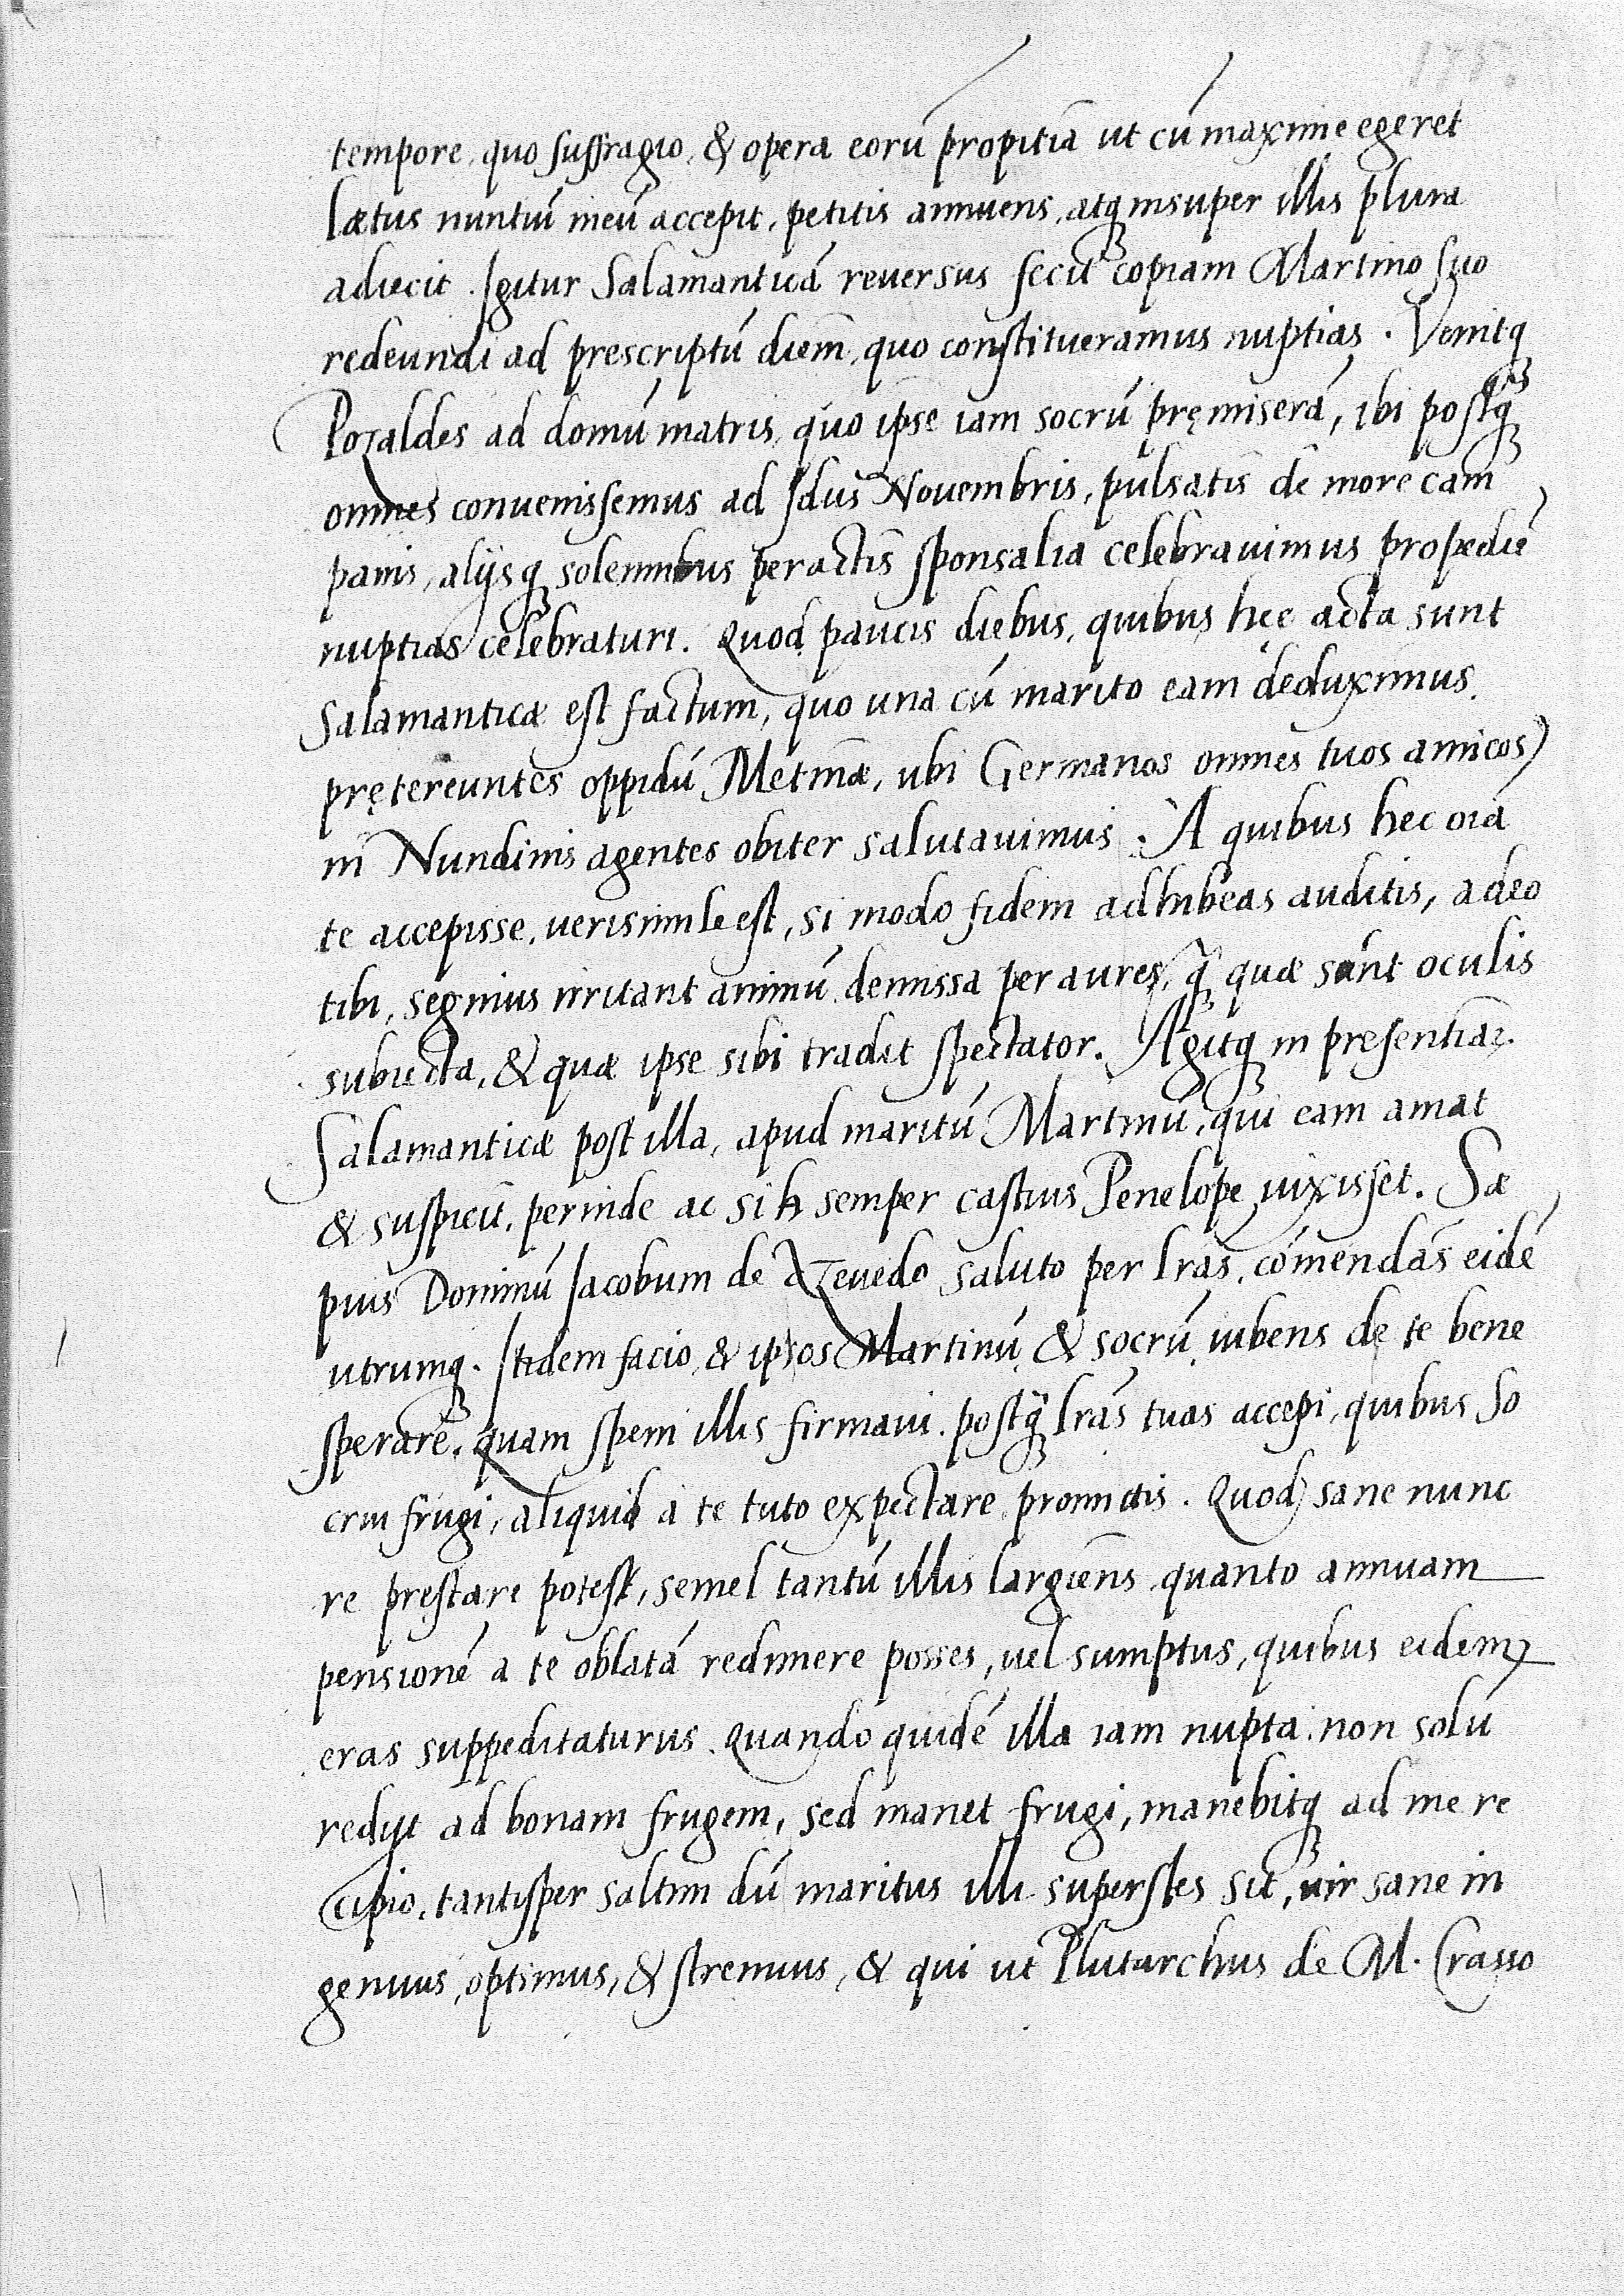 175.
tempore, quo suffragio, & opera eorū propitiā ut cū maxime egeret
lætus nuntiū meū accepit, petitis annuens, atq; insuper illis plura
adiecit. Igitur Salamanticā reuersus fecit copiam Martino suo
redeundi ad prescriptū diem, quo constitueramus nuptias. Venitq;
Pozaldes ad domū matris, quo ipse iam socrū pręmiserā, ibi postq̃
omnes conuenissemus ad Idus Nouembris, pulsatis de more cam
panis, alijsq; solemnibus peractis sponsalia celebrauimus propediē
nuptias celebraturi. Quod paucis diebus, quibus hęc acta sunt
Salamanticæ est factum, quo una cū marito eam deduximus.
prętereuntes oppidū Metinæ, ubi Germanos omnes tuos amicos
in Nundinis agentes obiter salutauimus. A quibus hec oīa
te accepisse, uerisimile est, si modo fidem adhibeas auditis, adeo
tibi, segnius irritant animū demissa per aures, q̃ quæ sunt oculis
subiecta, & quæ ipse sibi tradit spectator. Agitq; in presentiaꝝ
Salamanticæ post illa, apud maritū Martinū, qui eam amat
& suspicit, perinde ac si semper castius Penelope uixisset. Sæ
pius Dominū Iacobum de Azeuedo saluto per lrās, cōmendās eidē
utrumq;. Itidem facio, & ipsos Martinū & socrū iubens de te bene
sperare, quam spem illis firmaui, postq̃ lrās tuas accepi, quibus so
crui frugi, aliquid à te tuto expectare promittis. Quod sane nunc
re prestare potest, semel tantū illis largiens quanto annuam
pensionē a te oblatā redimere posses, uel sumptus, quibus eidem
eras suppeditaturus. Quando quidē illa iam nupta, non solū
redijt ad bonam frugem, sed manet frugi, manebitq; ad me re
cipio, tantisper saltim dū maritus illi superstes sit, uir sane in
genuus, optimus, & strenuus, & qui ut Plutarchus de M. Crasso